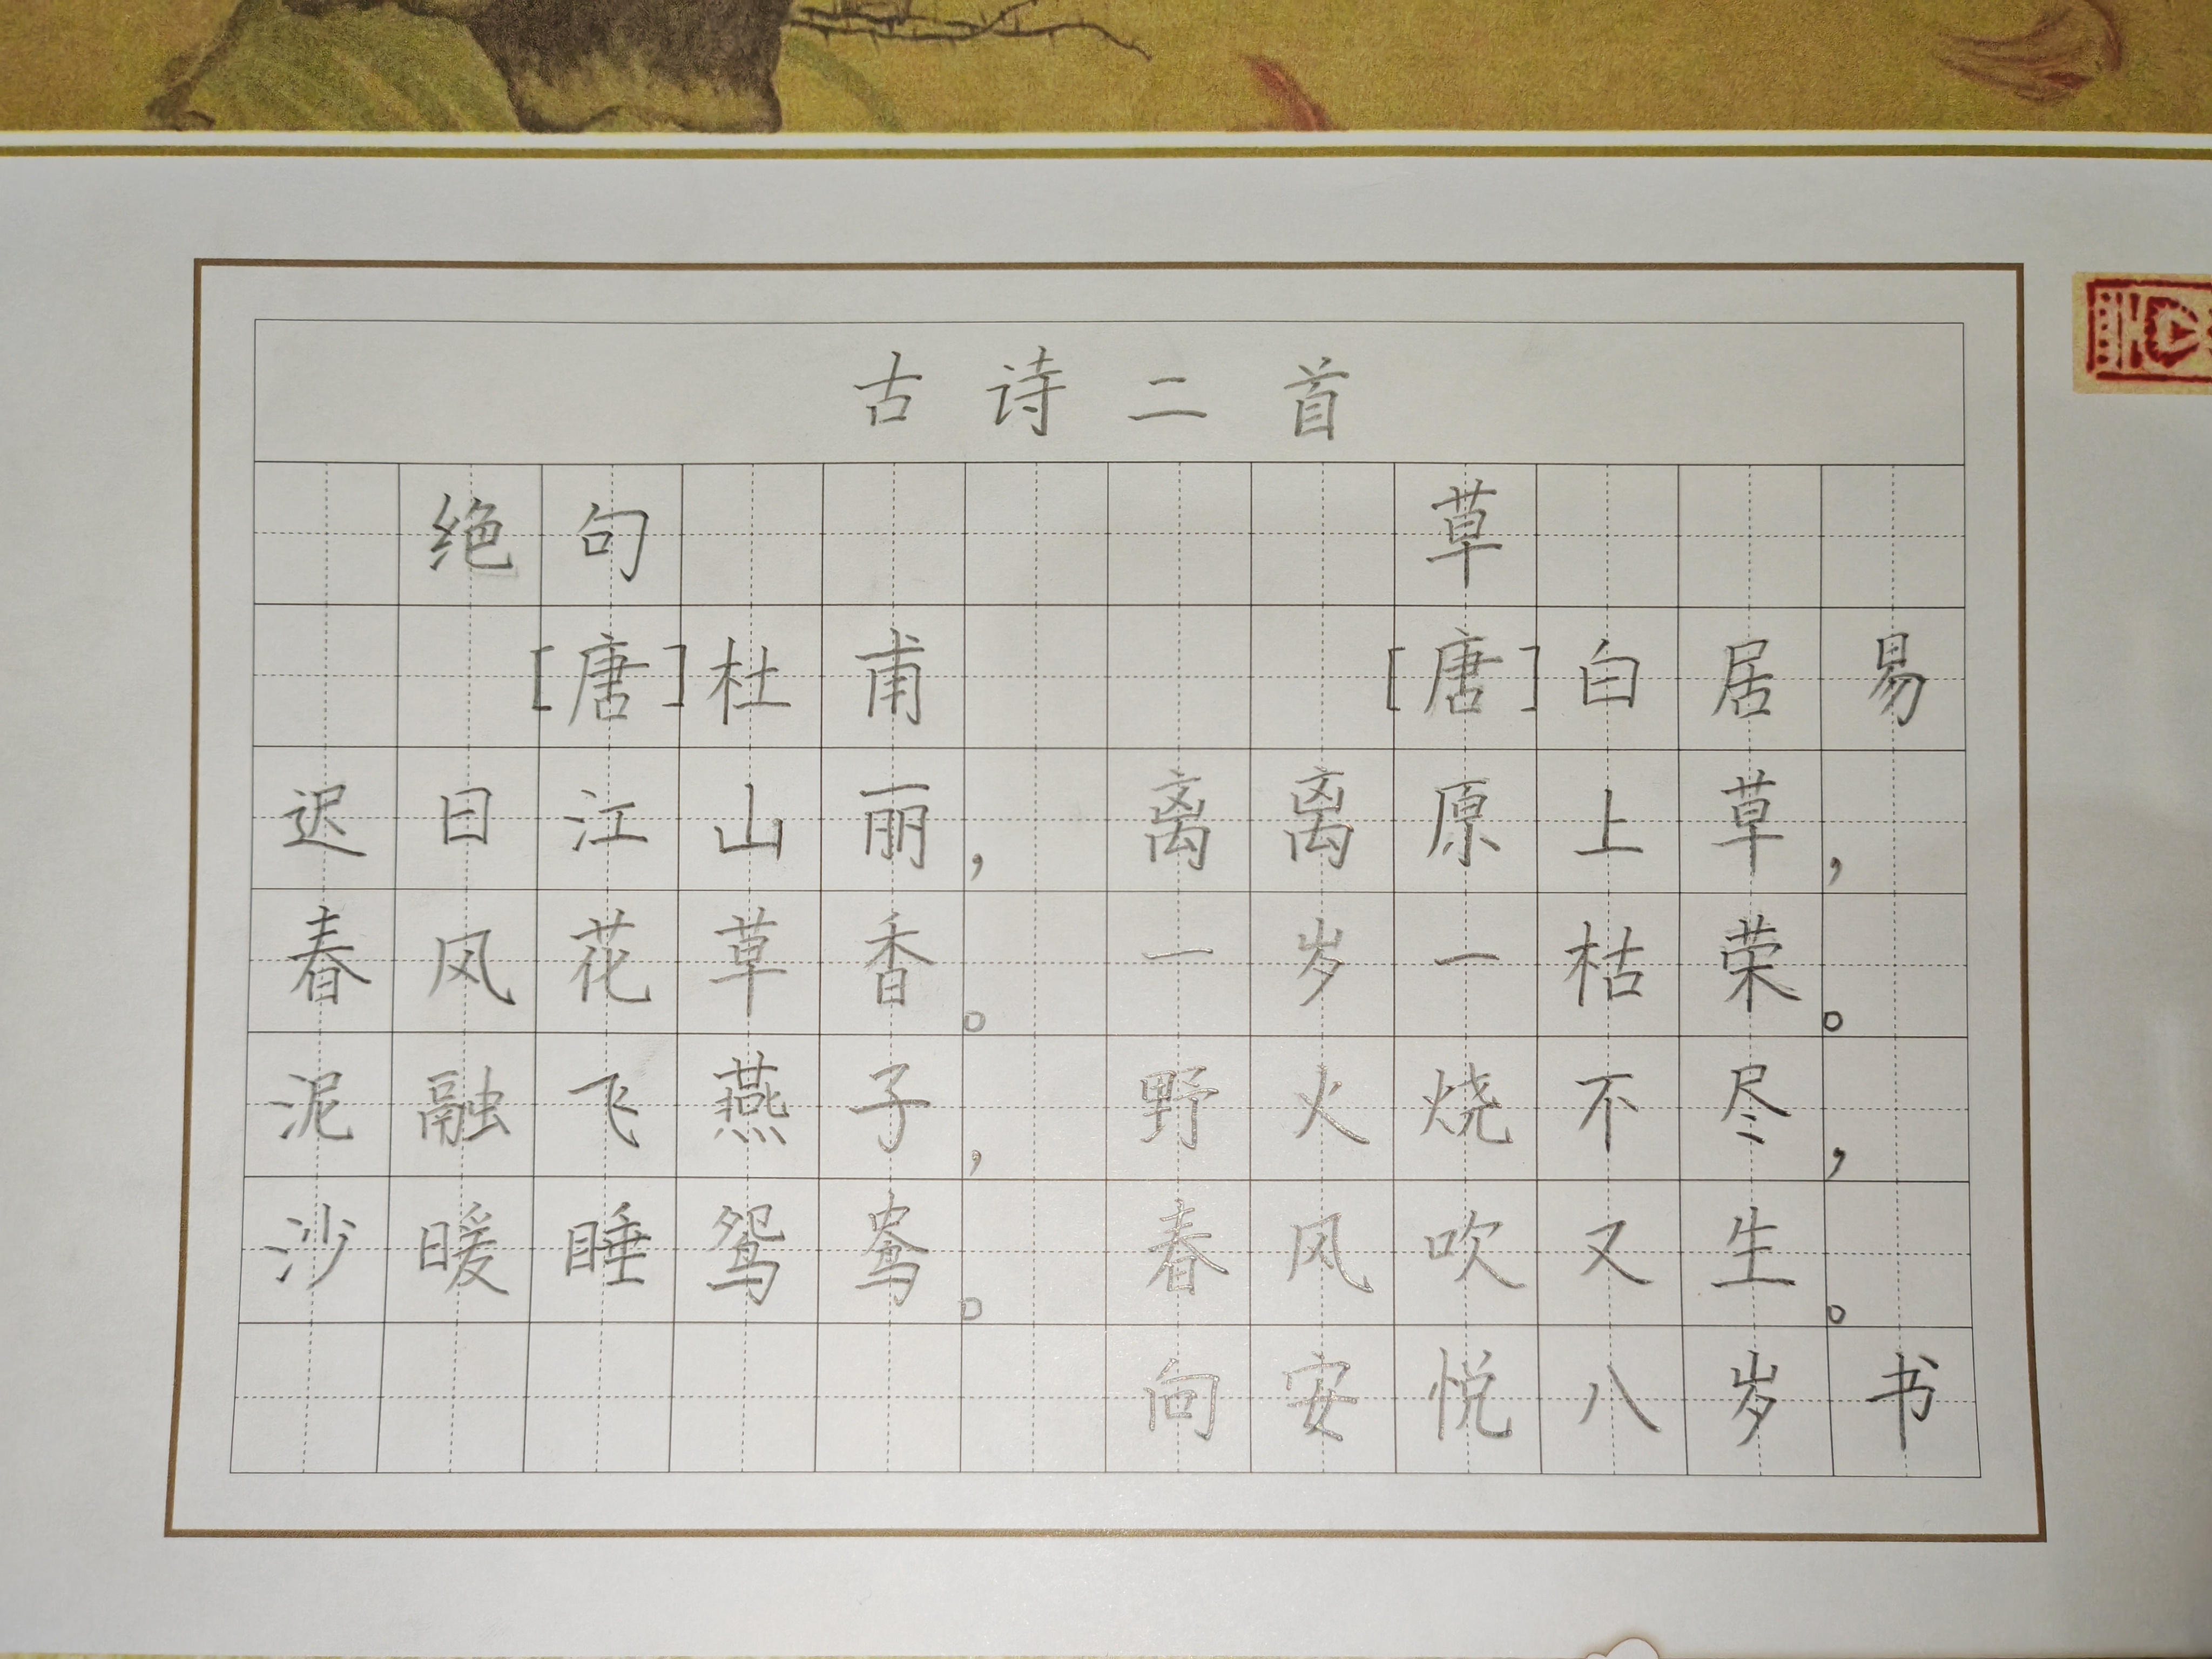 古诗二首
绝句
[唐]杜甫
迟日江山丽，
春风花草香。
泥融飞燕子，
沙暖睡鸳鸯。
草
[唐]白居易
离离原上草，
一岁一枯荣。
野火烧不尽，
春风吹又生。
向安悦八岁书